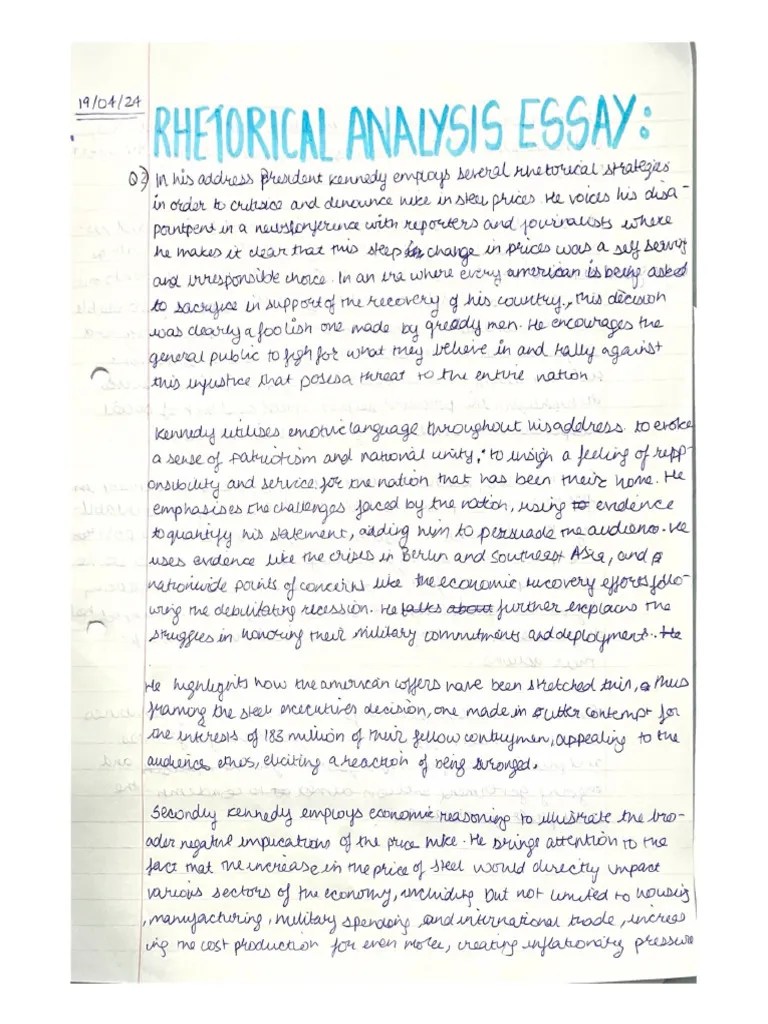 19/04/24
RHETORICAL ANALYSIS ESSAY:
Q2) In his address President Kennedy employs several rhetorical strategies
in order to critisize and denounce hike in steel prices. He voices his disa-
pointpent in a newsconference with reporters and journalists where
he makes it clear that this step in change in prices was a self serving
and irresponsible choice. In an era where every american is being asked
to sacrifice in support of the recovery of his country, this decision
was clearly a foolish one made by greedy men. He encourages the
general public to figh for what they believe in and rally against
this injustice that poses a threat to the entire nation
Kennedy utilises emotive language throughout his address to evoke
a sense of patriotism and national unity, to insign a feeling of resp-
onsibility and service for the nation that has been their home. He
emphasises the challenges faced by the nation, using to evidence
to quantify his statement, aiding him to persuade the audience. He
uses evidence like the crises in Berlin and Southeast Asia, and
nationwide points of concerns like the economic recovery efforts follo-
wing the debilitating recession. He talks about further explains the
struggles in honoring their military commitments and deployment. He
He highlights how the american coffers have been stretched thin, thus
framing the steel executives decision, one made in utter contempt for
the interests of 183 million of their fellow contrymen, appealing to the
audience ethos, eliciting a reaction of being wronged.
Secondly Kennedy employs economic reasoning to illustrate the bro-
ader negative implications of the price hike. He brings attention to the
fact that the increase in the price of steel would directly impact
various sectors of the economy, including but not limited to housing
, manufacturing, military spending and international trade, increas
ing the cost production for even more, creating inflationary pressure